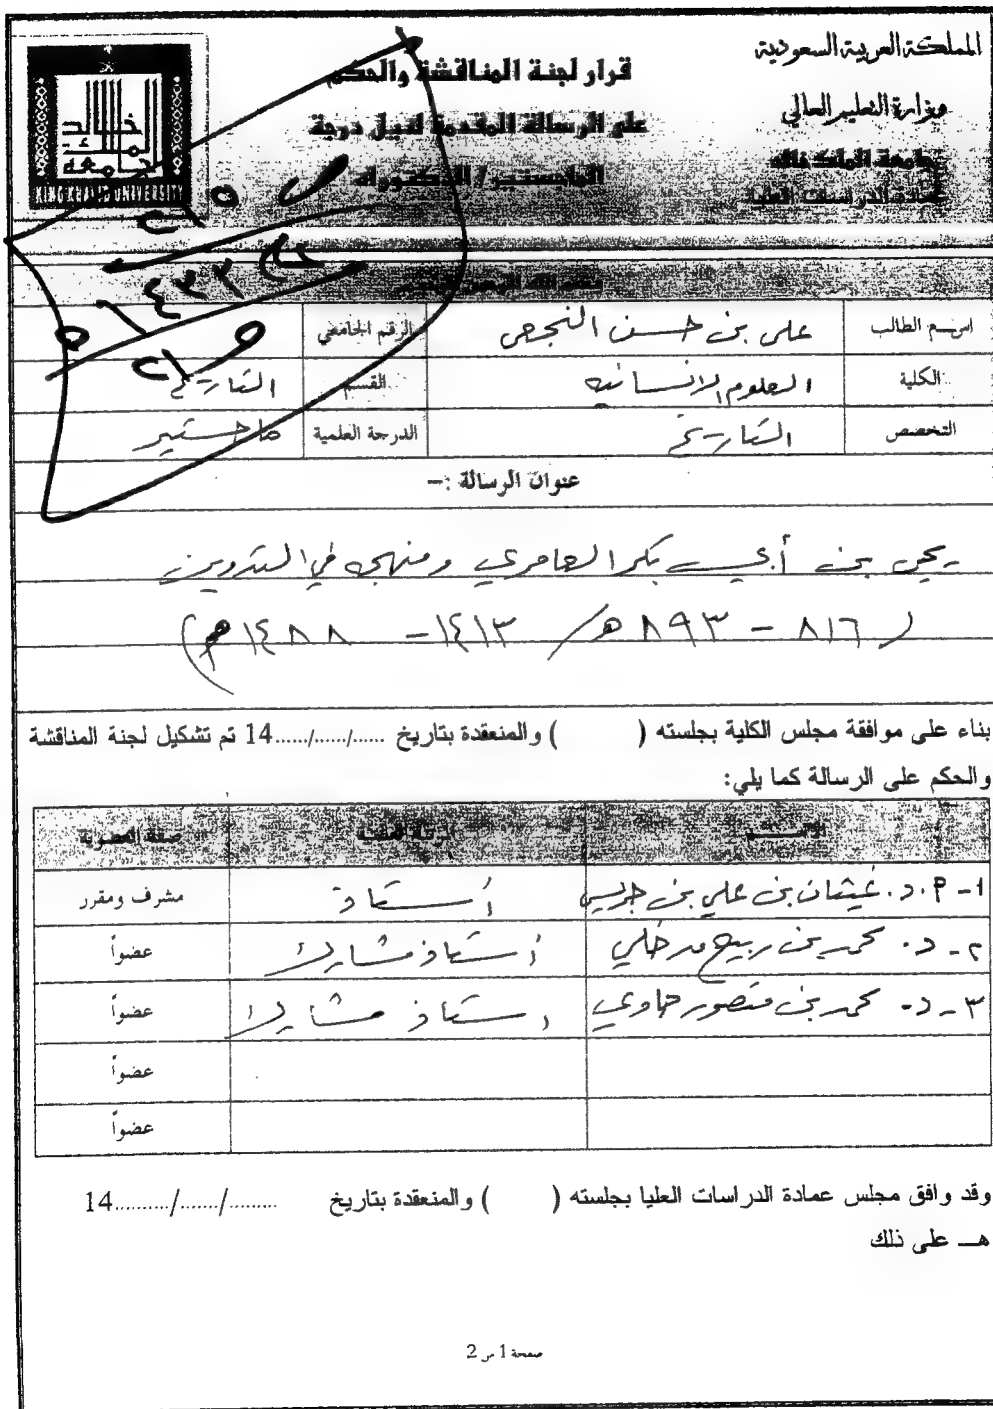 المملكة العربية السعودية
وزارة التعليم العالي
جامعة الملك خالد
عمادة الدراسات العليا
قرار لجنة المناقشة والحكم
على الرسالة المقدمة لنيل درجة
الماجستير / الدكتوراه
جامعة الملك خالد
KING KHALID UNIVERSITY
بسم الله الرحمن الرحيم
اسم الطالب علي بن حسن النجعي الرقم الجامعي
الكلية العلوم الإنسانية القسم التاريخ
التخصص التاريخ الدرجة العلمية ماجستير
عنوان الرسالة :-
يحيى بن أبي بكر العامري ومنهجه في التدوين
(٨١٦ - ٨٩٣ هـ / ١٤١٣ - ١٤٨٨ م)
بناء على موافقة مجلس الكلية بجلسته ( ) والمنعقدة بتاريخ ....../....../......14 تم تشكيل لجنة المناقشة
والحكم على الرسالة كما يلي:
الاسم صفة العضوية
١- أ.د. غيثان بن علي بن جريس أستاذ مشرف ومقرر
٢- د. محمد بن ربيع مدخلي أستاذ مشارك عضواً
٣- د. محمد بن منصور حاوي أستاذ مشارك عضواً
عضواً
عضواً
وقد وافق مجلس عمادة الدراسات العليا بجلسته ( ) والمنعقدة بتاريخ ........./......./..........14
هـ على ذلك
صفحة 1 من 2